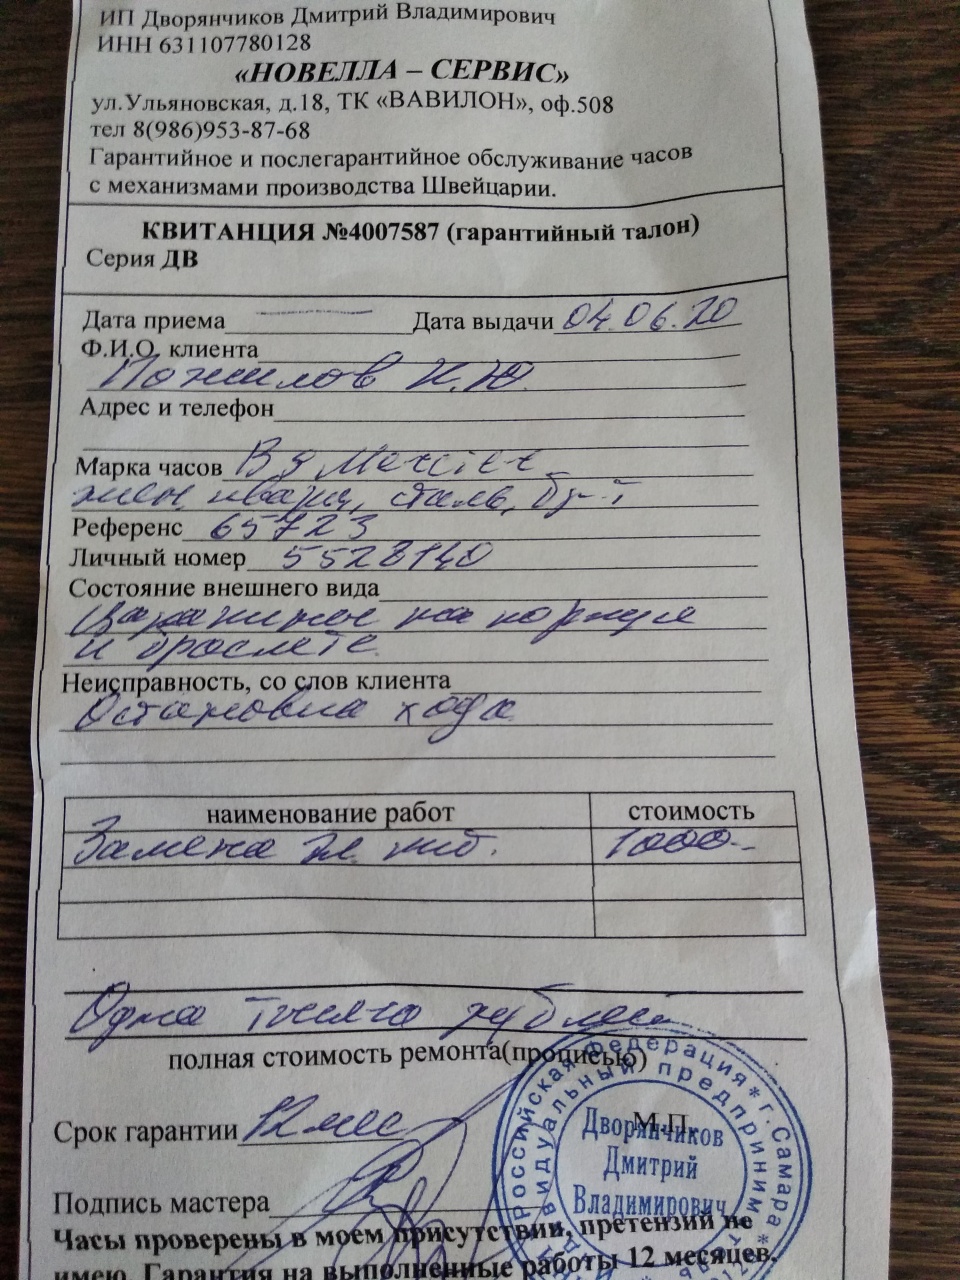 ИП Дворянчиков Дмитрий Владимирович
ИНН 631107780128
«НОВЕЛЛА – СЕРВИС»
ул.Ульяновская, д.18, ТК «ВАВИЛОН», оф.508
тел 8(986)953-87-68
Гарантийное и послегарантийное обслуживание часов
с механизмами производства Швейцарии.
КВИТАНЦИЯ №4007587 (гарантийный талон)
Серия ДВ
Дата приема Дата выдачи 04.06.20
Ф.И.О. клиента
Пожилов К.Ю.
Адрес и телефон
Марка часов B g Mercier
жен, кварц, сталь, бр-т
Референс 65723
Личный номер 5528140
Состояние внешнего вида
Царапины на корпусе
и браслете
Неисправность, со слов клиента
Остановка хода
наименование работ стоимость
Замена эл. пит. 1000-
Одна тысяча рублей
полная стоимость ремонта(прописью)
Срок гарантии 12 мес
М.П.
Российская Федерация * г. Самара *
индивидуальный предприним
Дворянчиков
Дмитрий
Владимирович
Подпись мастера
Часы проверены в моем присутствии, претензий не
имею. Гарантия на выполненные работы 12 месяцев.